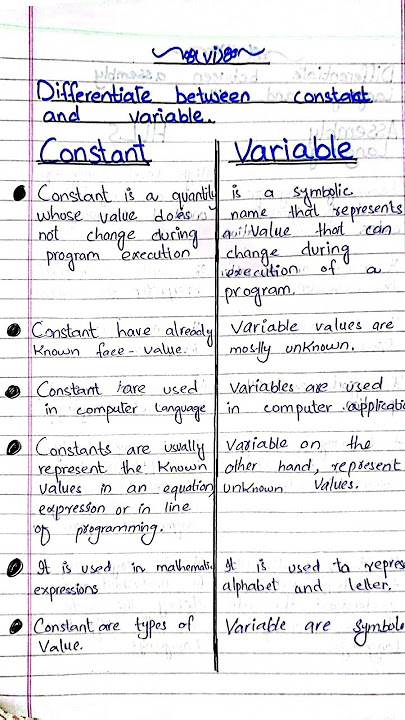 Differentiate between constant
and variable.
Constant
Constant is a quantity
whose value does
not change during
program execution
Constant have already
known face-value.
Constant are used
in computer language
Constants are usually
represent the known
values in an equation,
expression or in line
of programming.
It is used in mathematic
expressions
Constant are types of
Value.
Variable
is a symbolic
name that represents
a value that can
change during
execution of a
program.
Variable values are
mostly unknown.
Variables are used
in computer applicatio
Variable on the
other hand, represent
unknown values.
It is used to repres
alphabet and letter.
Variable are symbols